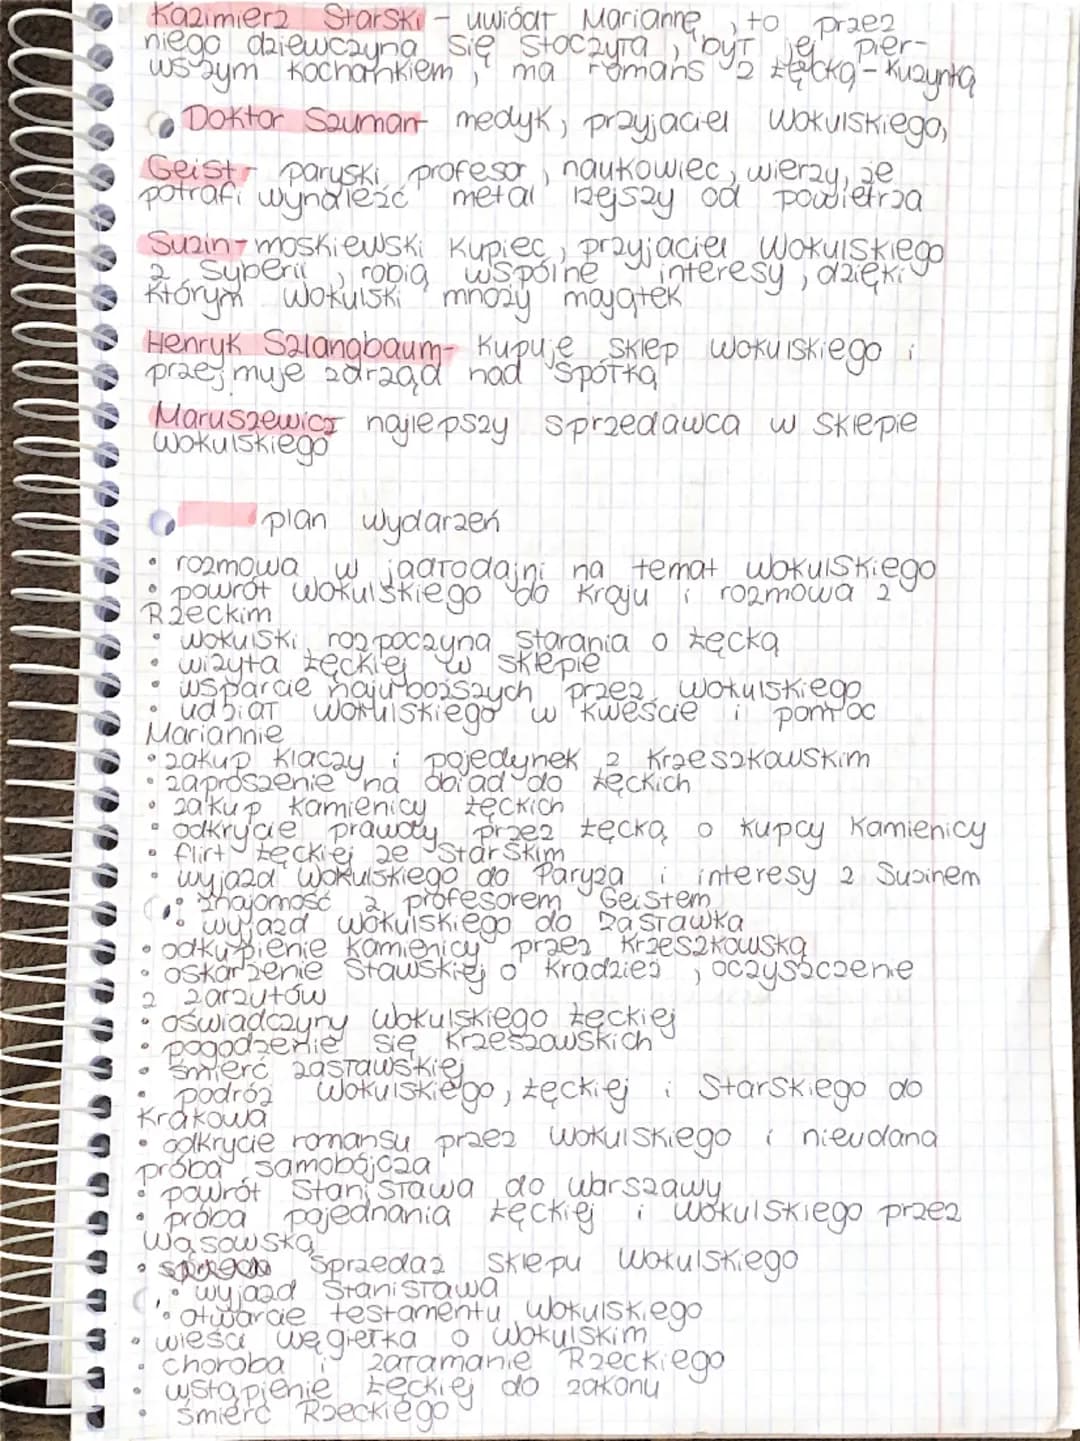 Kazimierz Starski - uwiódł Mariannę, to przez
niego dziewczyna się stoczyła, był jej pier-
wszym kochankiem, ma romans z Łęcką - kuzynką
Doktor Szuman - medyk, przyjaciel Wokulskiego,
Geist - paryski profesor, naukowiec, wierzy, że
potrafi wynaleźć metal lżejszy od powietrza
Suzin - moskiewski kupiec, przyjaciel Wokulskiego
z Syberii, robią wspólne interesy, dzięki
którym Wokulski mnoży majątek
Henryk Szlangbaum - kupuje sklep Wokulskiego i
przejmuje zarząd nad spółką
Maruszewicz najlepszy sprzedawca w sklepie
Wokulskiego
plan wydarzeń
• rozmowa w jadłodajni na temat Wokulskiego
• powrót Wokulskiego do kraju i rozmowa z
Rzeckim
• Wokulski rozpoczyna starania o Łęcką
• wizyta Łęckiej w sklepie
• wsparcie najuboższych przez Wokulskiego
• udział Wokulskiego w kweście i pomoc
Mariannie
• zakup klaczy i pojedynek z Krzeszkowskim
• zaproszenie na obiad do Łęckich
• zakup kamienicy Łęckich
• odkrycie prawdy przez Łęcką o kupcy kamienicy
• flirt Łęckiej ze Starskim
• wyjazd Wokulskiego do Paryża i interesy z Suzinem
• znajomość z profesorem Geistem
• wyjazd Wokulskiego do Zasławka
• odkupienie kamienicy przez Krzeszkowską
• oskarżenie Stawskiej o kradzież, oczyszczenie
z zarzutów
• oświadczyny Wokulskiego Łęckiej
• pogodzenie się Krzeszowskich
• śmierć Zasławskiej
• podróż Wokulskiego, Łęckiej i Starskiego do
Krakowa
• odkrycie romansu przez Wokulskiego i nieudana
próba samobójcza
• powrót Stanisława do Warszawy
• próba pojednania Łęckiej i Wokulskiego przez
Wąsowską
• sprzedaż sklepu Wokulskiego
• wyjazd Stanisława
• otwarcie testamentu Wokulskiego
• wieści węgiełka o Wokulskim
• choroba i załamanie Rzeckiego
• wstąpienie Łęckiej do zakonu
• śmierć Rzeckiego